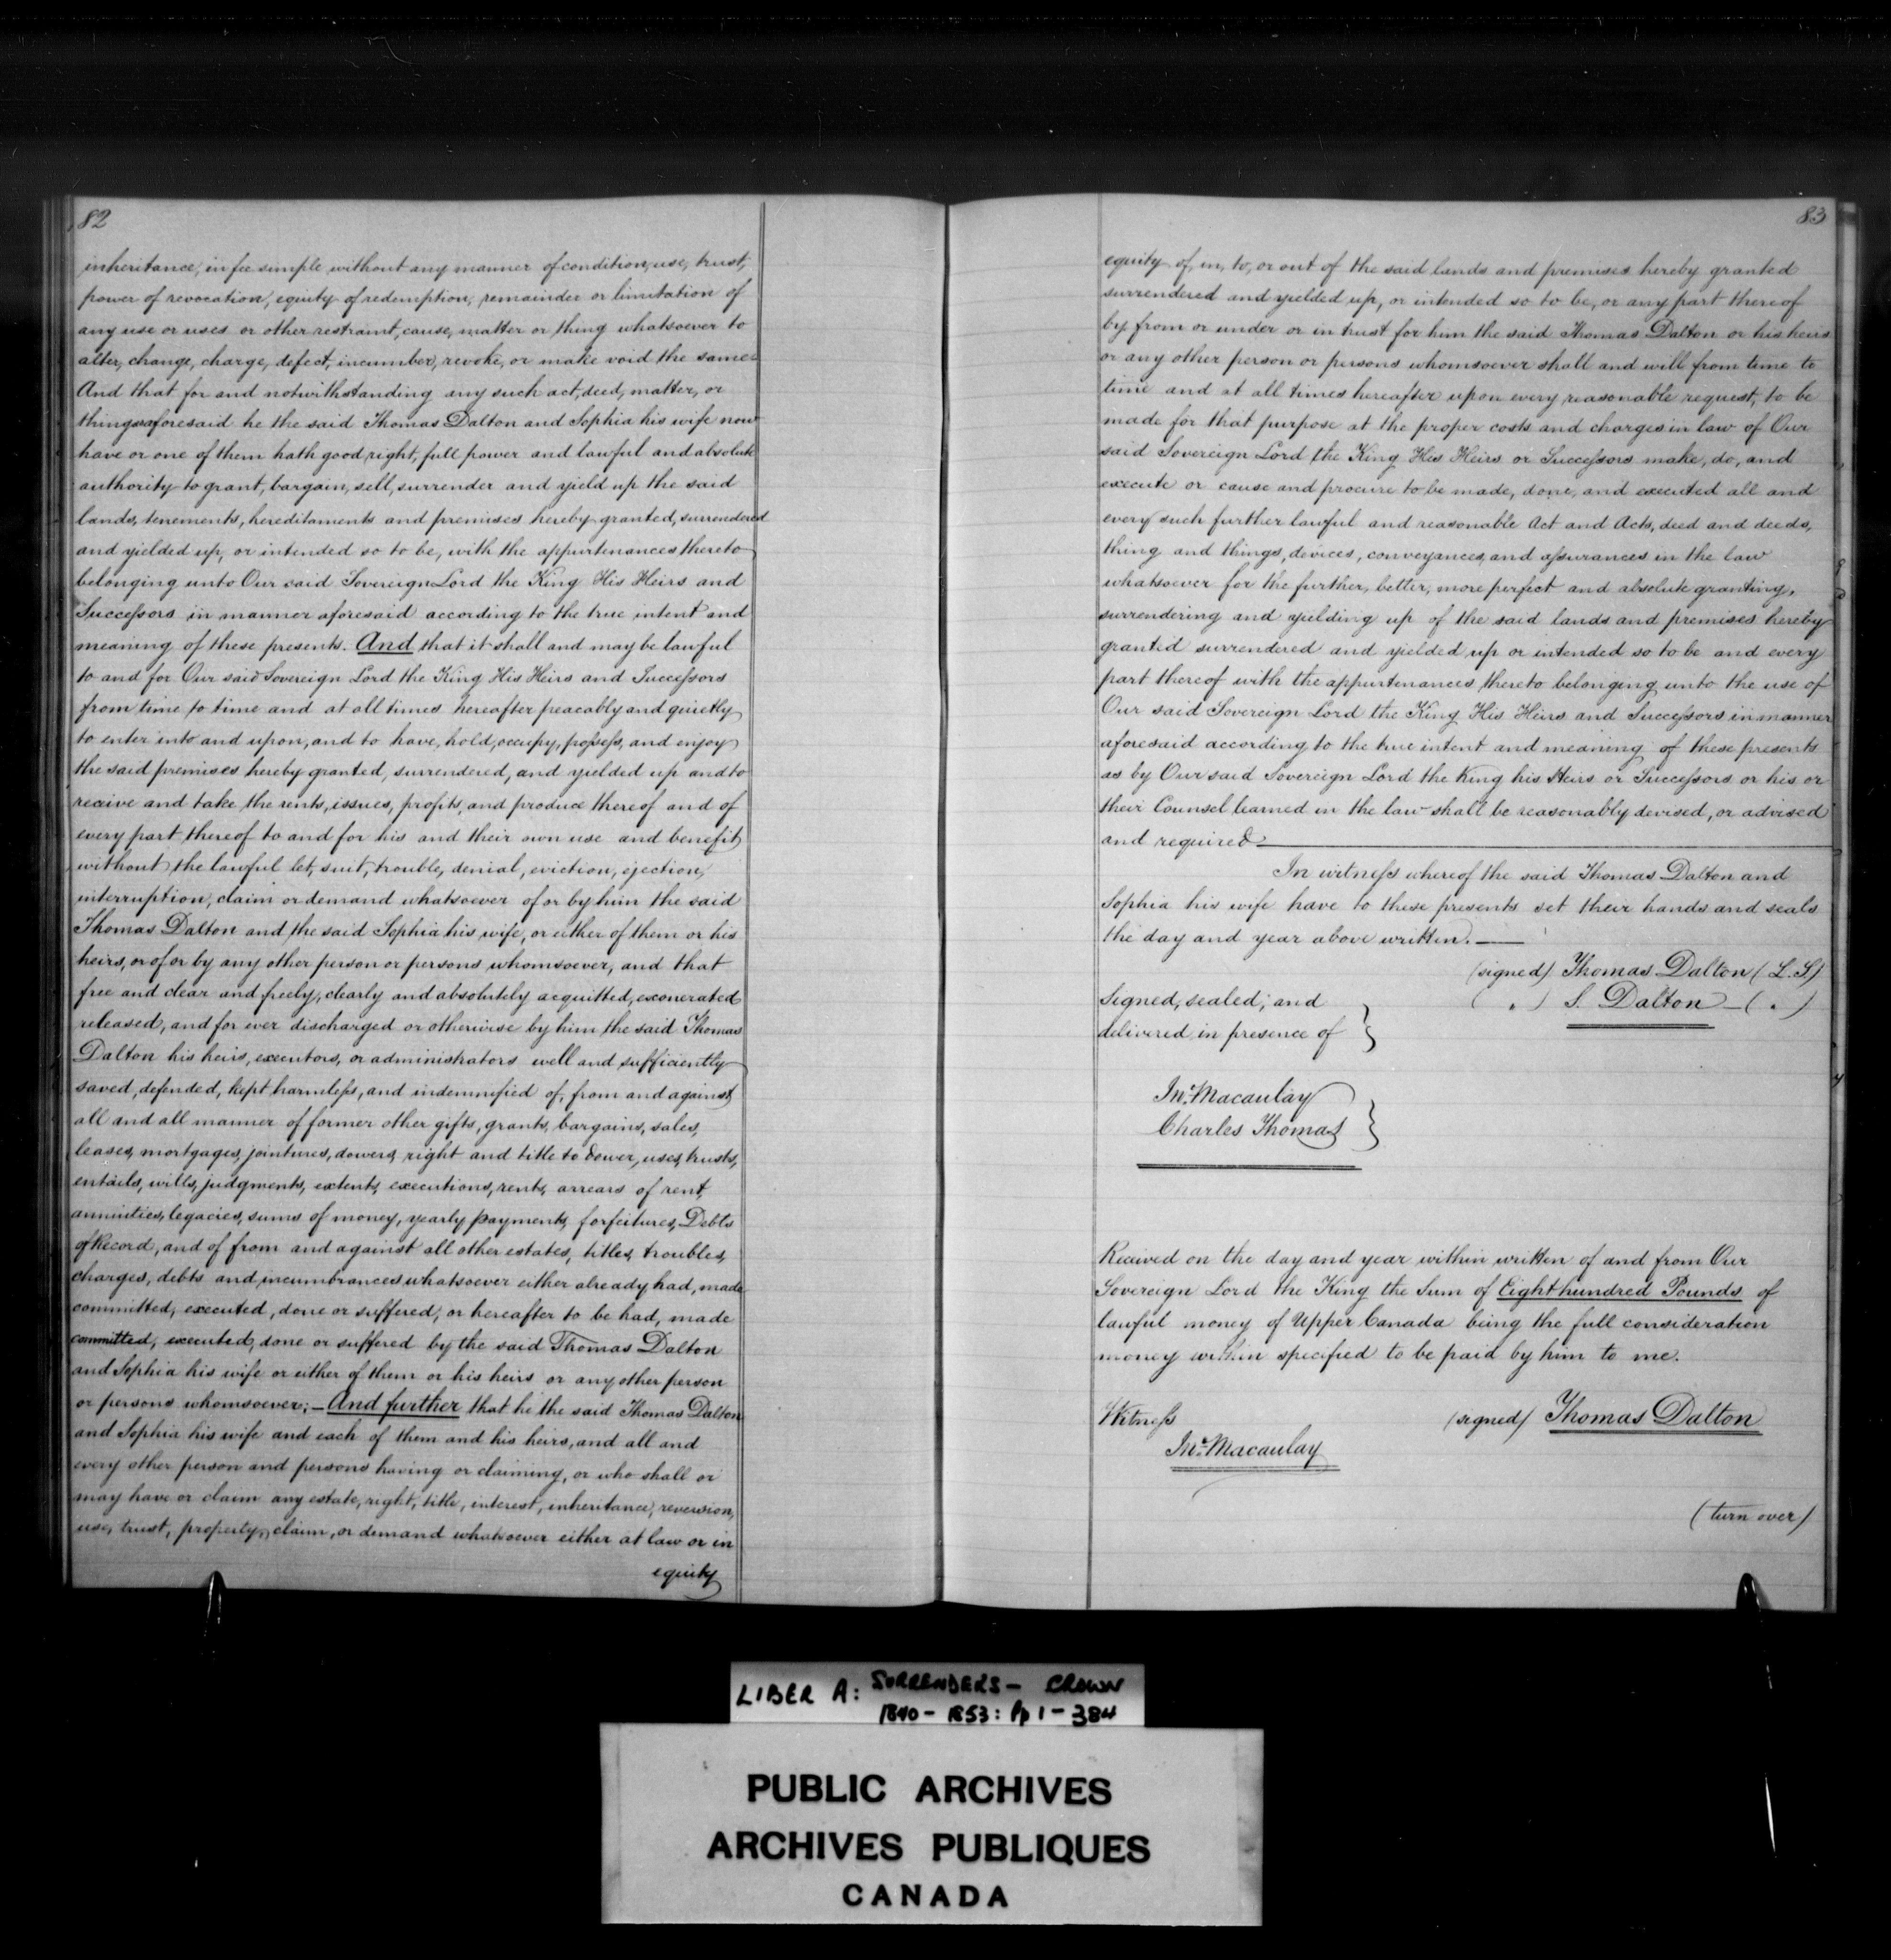 82
inheritance, in fee simple without any manner of condition, use, trust,
power of revocation, equity of redemption, remainder or limitation of
any use or uses or other restraint, cause, matter or thing whatsoever to
alter, change, charge, defect, incumber, revoke, or make void the same
And that for and notwithstanding any such act, deed, matter, or
things aforesaid he the said Thomas Dalton and Sophia his wife now
have or one of them hath good right, full power and lawful and absolute
authority to grant, bargain, sell, surrender and yield up the said
lands, tenements, hereditaments and premises hereby granted, surrendered
and yielded up, or intended so to be, with the appurtenances thereto
belonging unto Our said Sovereign Lord the King His Heirs and
Successors in manner aforesaid according to the true intent and
meaning of these presents. And that it shall and may be lawful
to and for Our said Sovereign Lord the King His Heirs and Successors
from time to time and at all times hereafter peacably and quietly
to enter into and upon, and to have, hold, occupy, possess, and enjoy
the said premises hereby granted, surrendered, and yielded up and to
receive and take the rents, issues, profits, and produce thereof and of
every part thereof to and for his and their own use and benefit
without the lawful let, suit, trouble, denial, eviction, ejection,
interruption, claim or demand whatsoever of or by him the said
Thomas Dalton and the said Sophia his wife, or either of them or his
heirs, or of or by any other person or persons whomsoever, and that
free and clear and freely, clearly and absolutely acquitted, exonerated
released, and for ever discharged or otherwise by him the said Thomas
Dalton his heirs, executors, or administrators well and sufficiently
saved, defended, kept harmless, and indemnified of, from and against
all and all manner of former other gifts, grants, bargains, sales,
leases, mortgages, jointures, dowers, right and title to dower, uses, trusts,
entails, wills, judgments, extents, executions, rents, arrears of rent,
annuities, legacies, sums of money, yearly payments, forfeitures, Debts
of Record, and of from and against all other estates, titles, troubles,
charges, debts and incumbrances whatsoever either already had, made
committed, executed, done or suffered, or hereafter to be had, made
committed, executed, done or suffered by the said Thomas Dalton
and Sophia his wife or either of them or his heirs or any other person
or persons whomsoever; — And further that he the said Thomas Dalton
and Sophia his wife and each of them and his heirs, and all and
every other person and persons having or claiming, or who shall or
may have or claim any estate, right, title, interest, inheritance, reversion,
use, trust, property, claim, or demand whatsoever either at law or in
equity
83
equity of, in, to, or out of the said lands and premises hereby granted
surrendered and yielded up, or intended so to be, or any part thereof
by from or under or in trust for him the said Thomas Dalton or his heirs
or any other person or persons whomsoever shall and will from time to
time and at all times hereafter upon every reasonable request, to be
made for that purpose at the proper costs and charges in law of Our
said Sovereign Lord the King His Heirs or Successors make, do, and
execute or cause and procure to be made, done, and executed all and
every such further lawful and reasonable Act and Acts, deed and deeds,
thing and things, devices, conveyances, and assurances in the law
whatsoever for the further, better, more perfect and absolute granting,
surrendering and yielding up of the said lands and premises hereby
granted surrendered and yielded up or intended so to be and every
part thereof with the appurtenances thereto belonging unto the use of
Our said Sovereign Lord the King His Heirs and Successors in manner
aforesaid according to the true intent and meaning of these presents
as by Our said Sovereign Lord the King his Heirs or Successors or his or
their Counsel learned in the law shall be reasonably devised, or advised
and required
In witness whereof the said Thomas Dalton and
Sophia his wife have to these presents set their hands and seals
the day and year above written. —
(signed) Thomas Dalton (L.S)
( " ) S. Dalton — ( " )
Signed, sealed, and
delivered in presence of
Jno. Macaulay
Charles Thomas
Received on the day and year within written of and from Our
Sovereign Lord the King the Sum of Eight hundred Pounds of
lawful money of Upper Canada being the full consideration
money within specified to be paid by him to me.
Witness (signed) Thomas Dalton
Jno. Macaulay
(turn over)
LIBER A: SURRENDERS — CROWN
1840 - 1853: Pp 1 - 384
PUBLIC ARCHIVES
ARCHIVES PUBLIQUES
CANADA